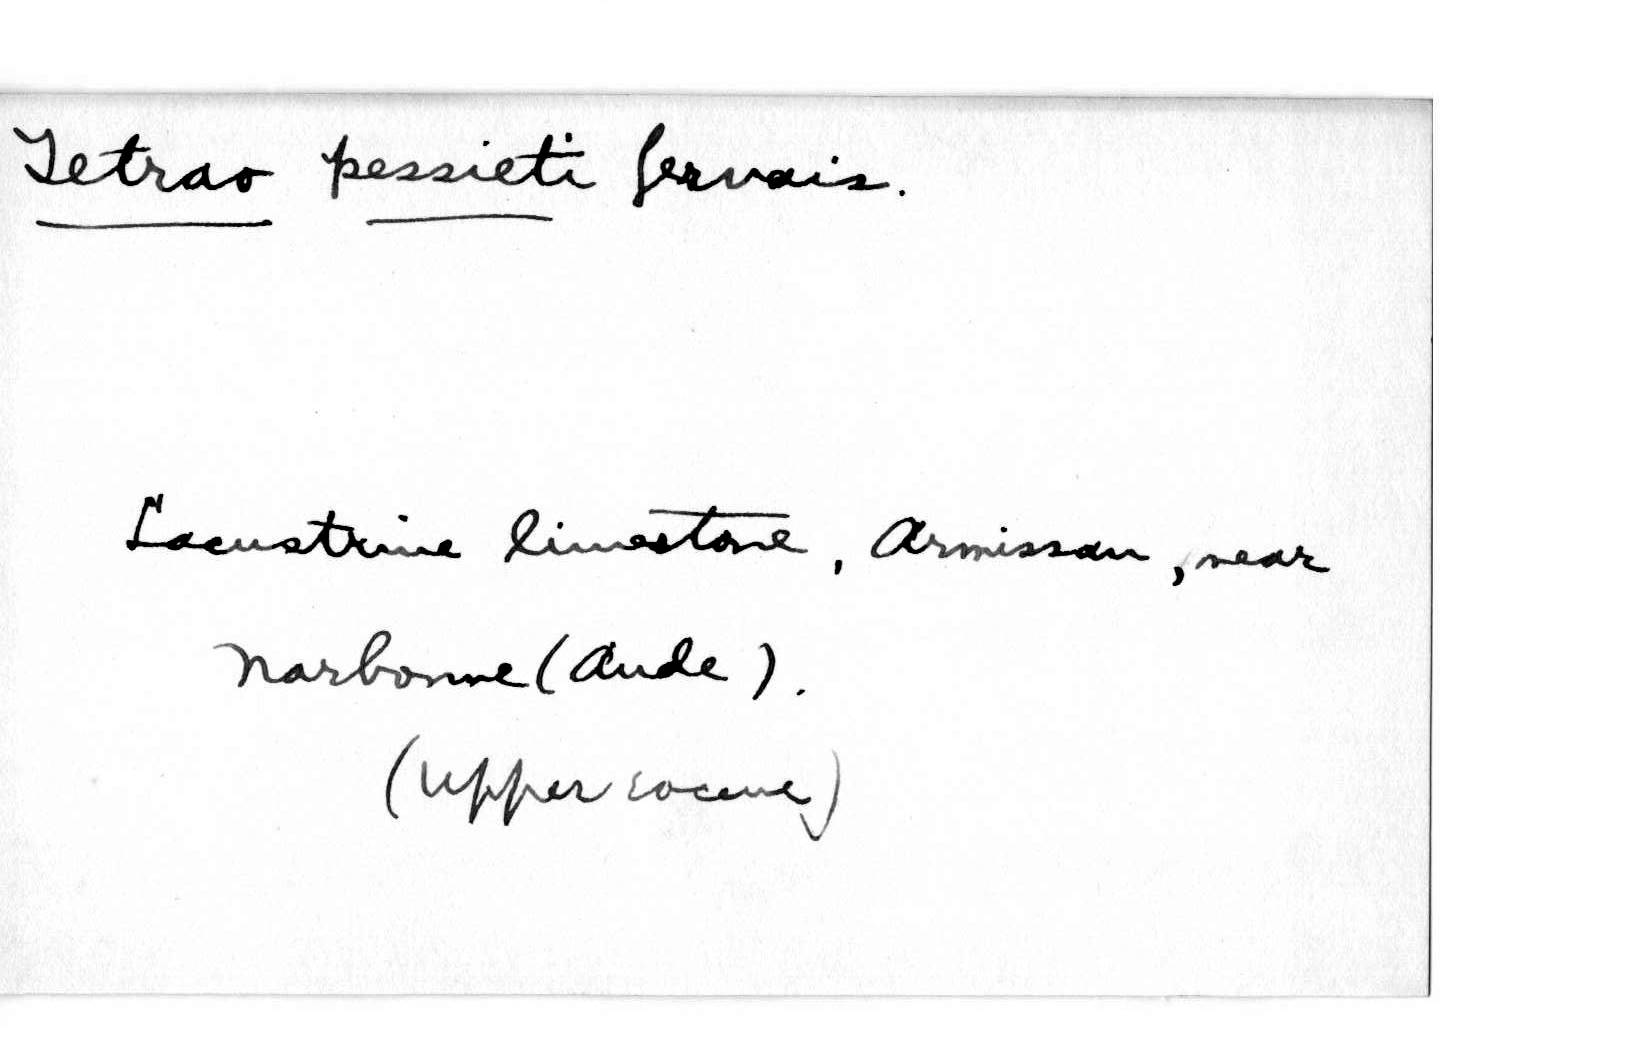 Tetrao pessieti Gervais.
Lacustrine limestone, Armissan, near
Narbonne (Aude).
(Upper eocene)